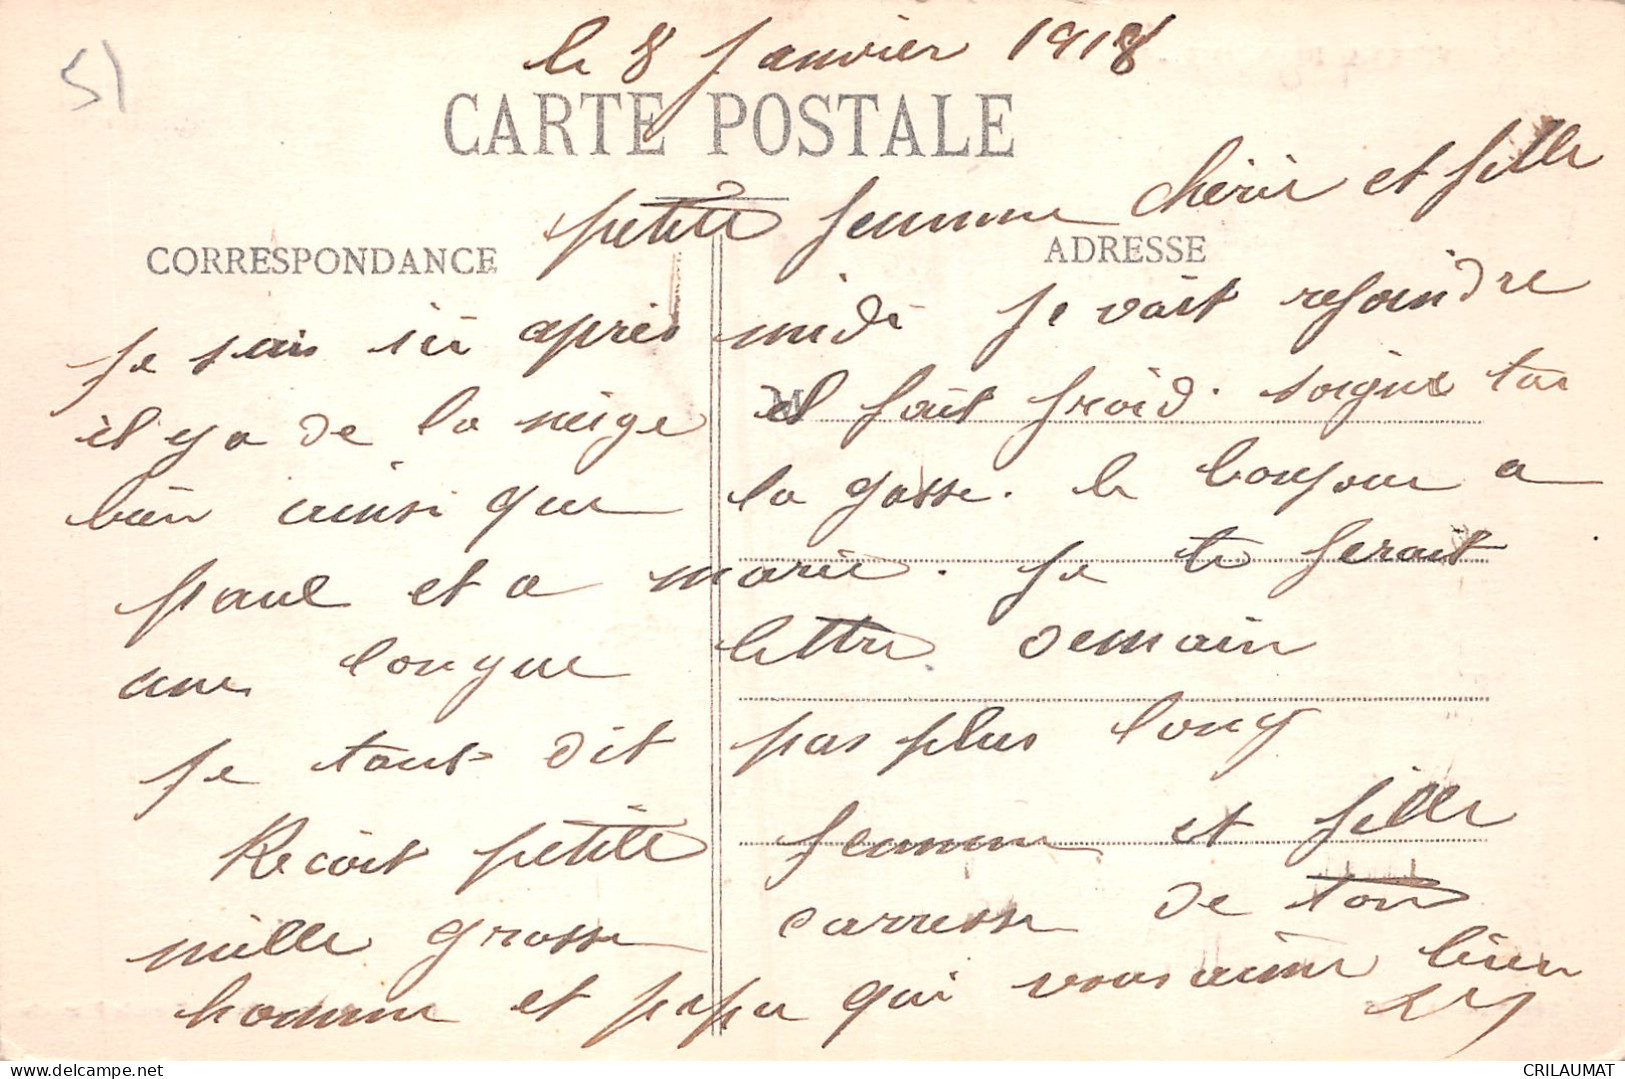 51
le 8 Janvier 1918
CARTE POSTALE
petite femme chérie et fille
CORRESPONDANCE
ADRESSE
Je suis ici après midi je vait rejoindre
il y a de la neige il fait froid. soigne toi
bien ainsi que la gosse. le bonjour a
paul et a marie. je te ferait
une longue lettre demain
je tant dit pas plus long
Recoit petite femme et fille
mille grosse carresse de ton
homme et papa qui vous aime bien
CRILAUMAT